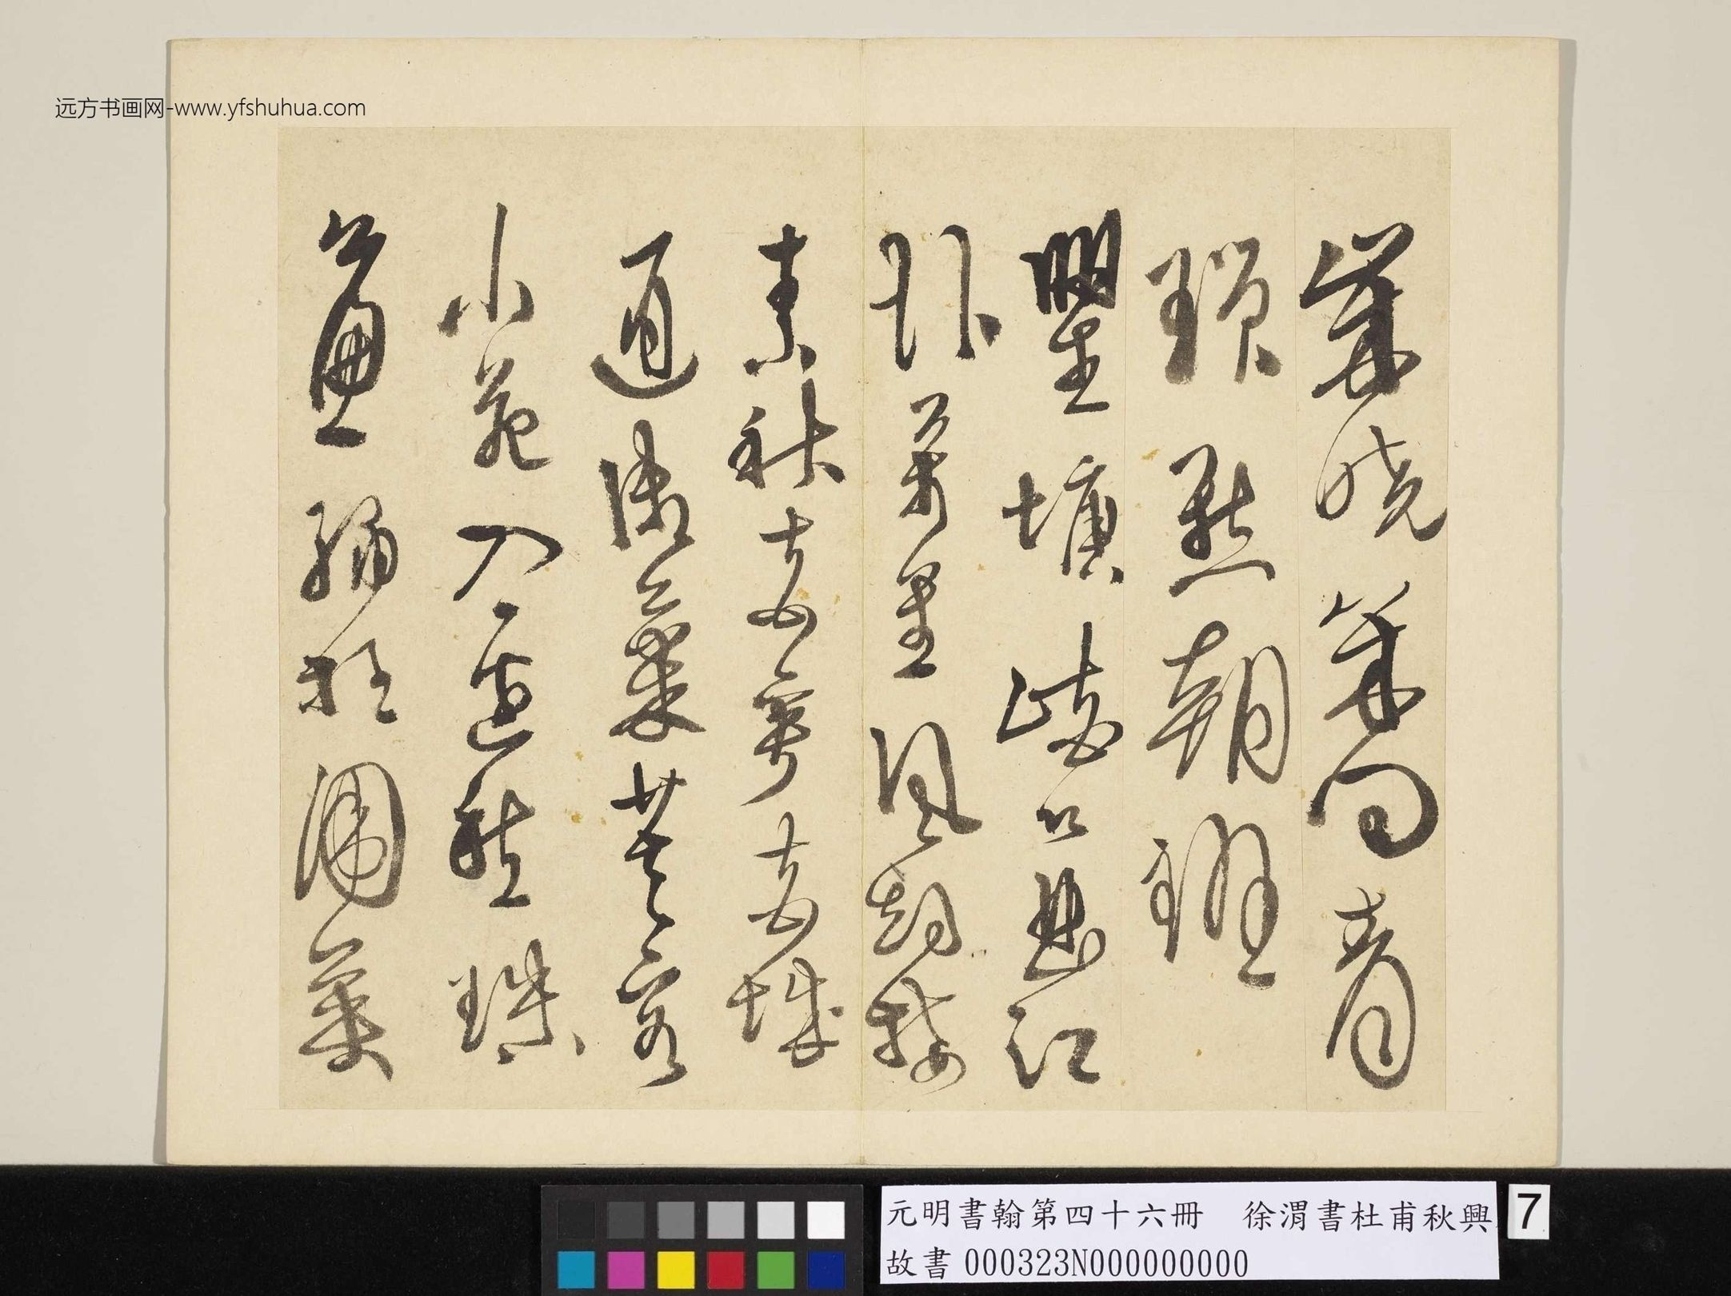 远方书画网-www.yfshuhua.com
歲晚幾回青
瑣點朝班
瞿塘峽口曲江
頭萬里風烟接
素秋花萼夾城
通御氣芙蓉
小苑入邊愁珠
簾繡柱圍黃
元明書翰第四十六冊　徐渭書杜甫秋興
故書 000323N000000000
7